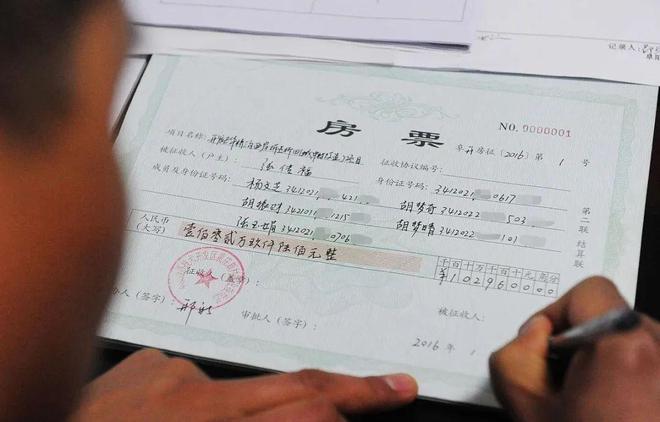 记录人：
房票
NO. 0000001
阜开房征（2016）第1号
项目名称：
征收协议编号：
被征收人（户主）：张佳福
成员及身份证号码：3412021 421
身份证号码：3412021 0617
杨文芝
胡振时3421011 1215
胡梦奇3412022 503
张玉娟3412021 0706
胡梦晴341202 101
第二联 结算联
人民币（大写）
壹佰零贰万玖仟陆佰元整
千百十万千百十元角分
¥102960000
征收人（盖章）：
被征收人：
办人（签字）：
审批人（签字）：
2016年1